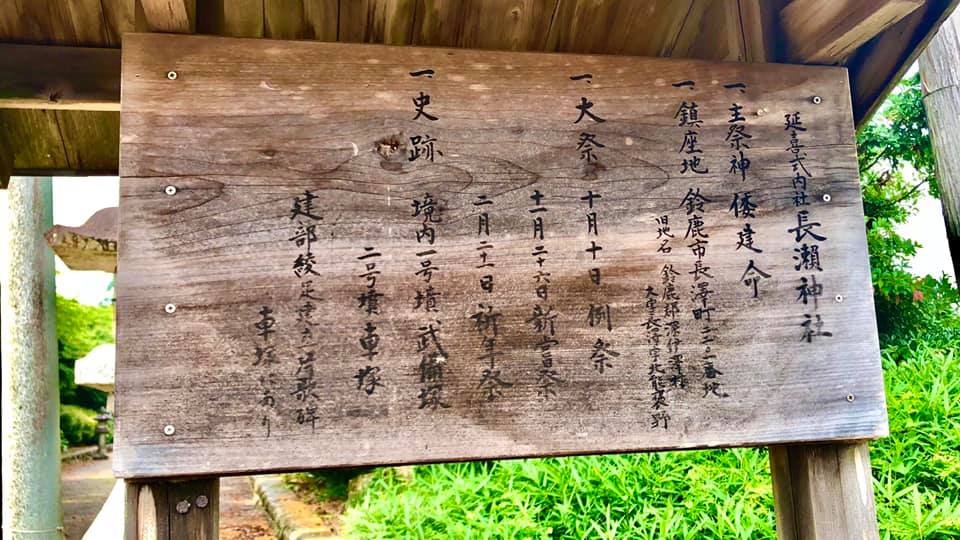 延喜式内社 長瀬神社
一、主祭神 倭建命
一、鎮座地 鈴鹿市長澤町二二三番地
旧地名 鈴鹿郡深伊澤村
大字長澤字北能褒野
一、大祭 十月十日 例祭
十一月二十六日 新嘗祭
二月二十一日 祈年祭
一、史跡 境内一号墳 武備塚
二号墳 車塚
建部綾足建立 片歌碑
車塚にあり